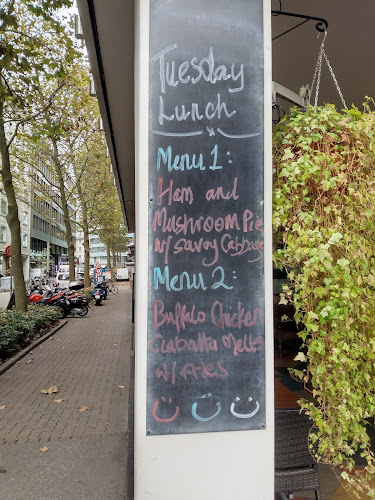 Tuesday
Lunch
Menu 1:
Ham and
Mushroom Pie
w/ Savoy Cabbage
Menu 2:
Buffalo Chicken
Ciabatta Melt
w/ Fries